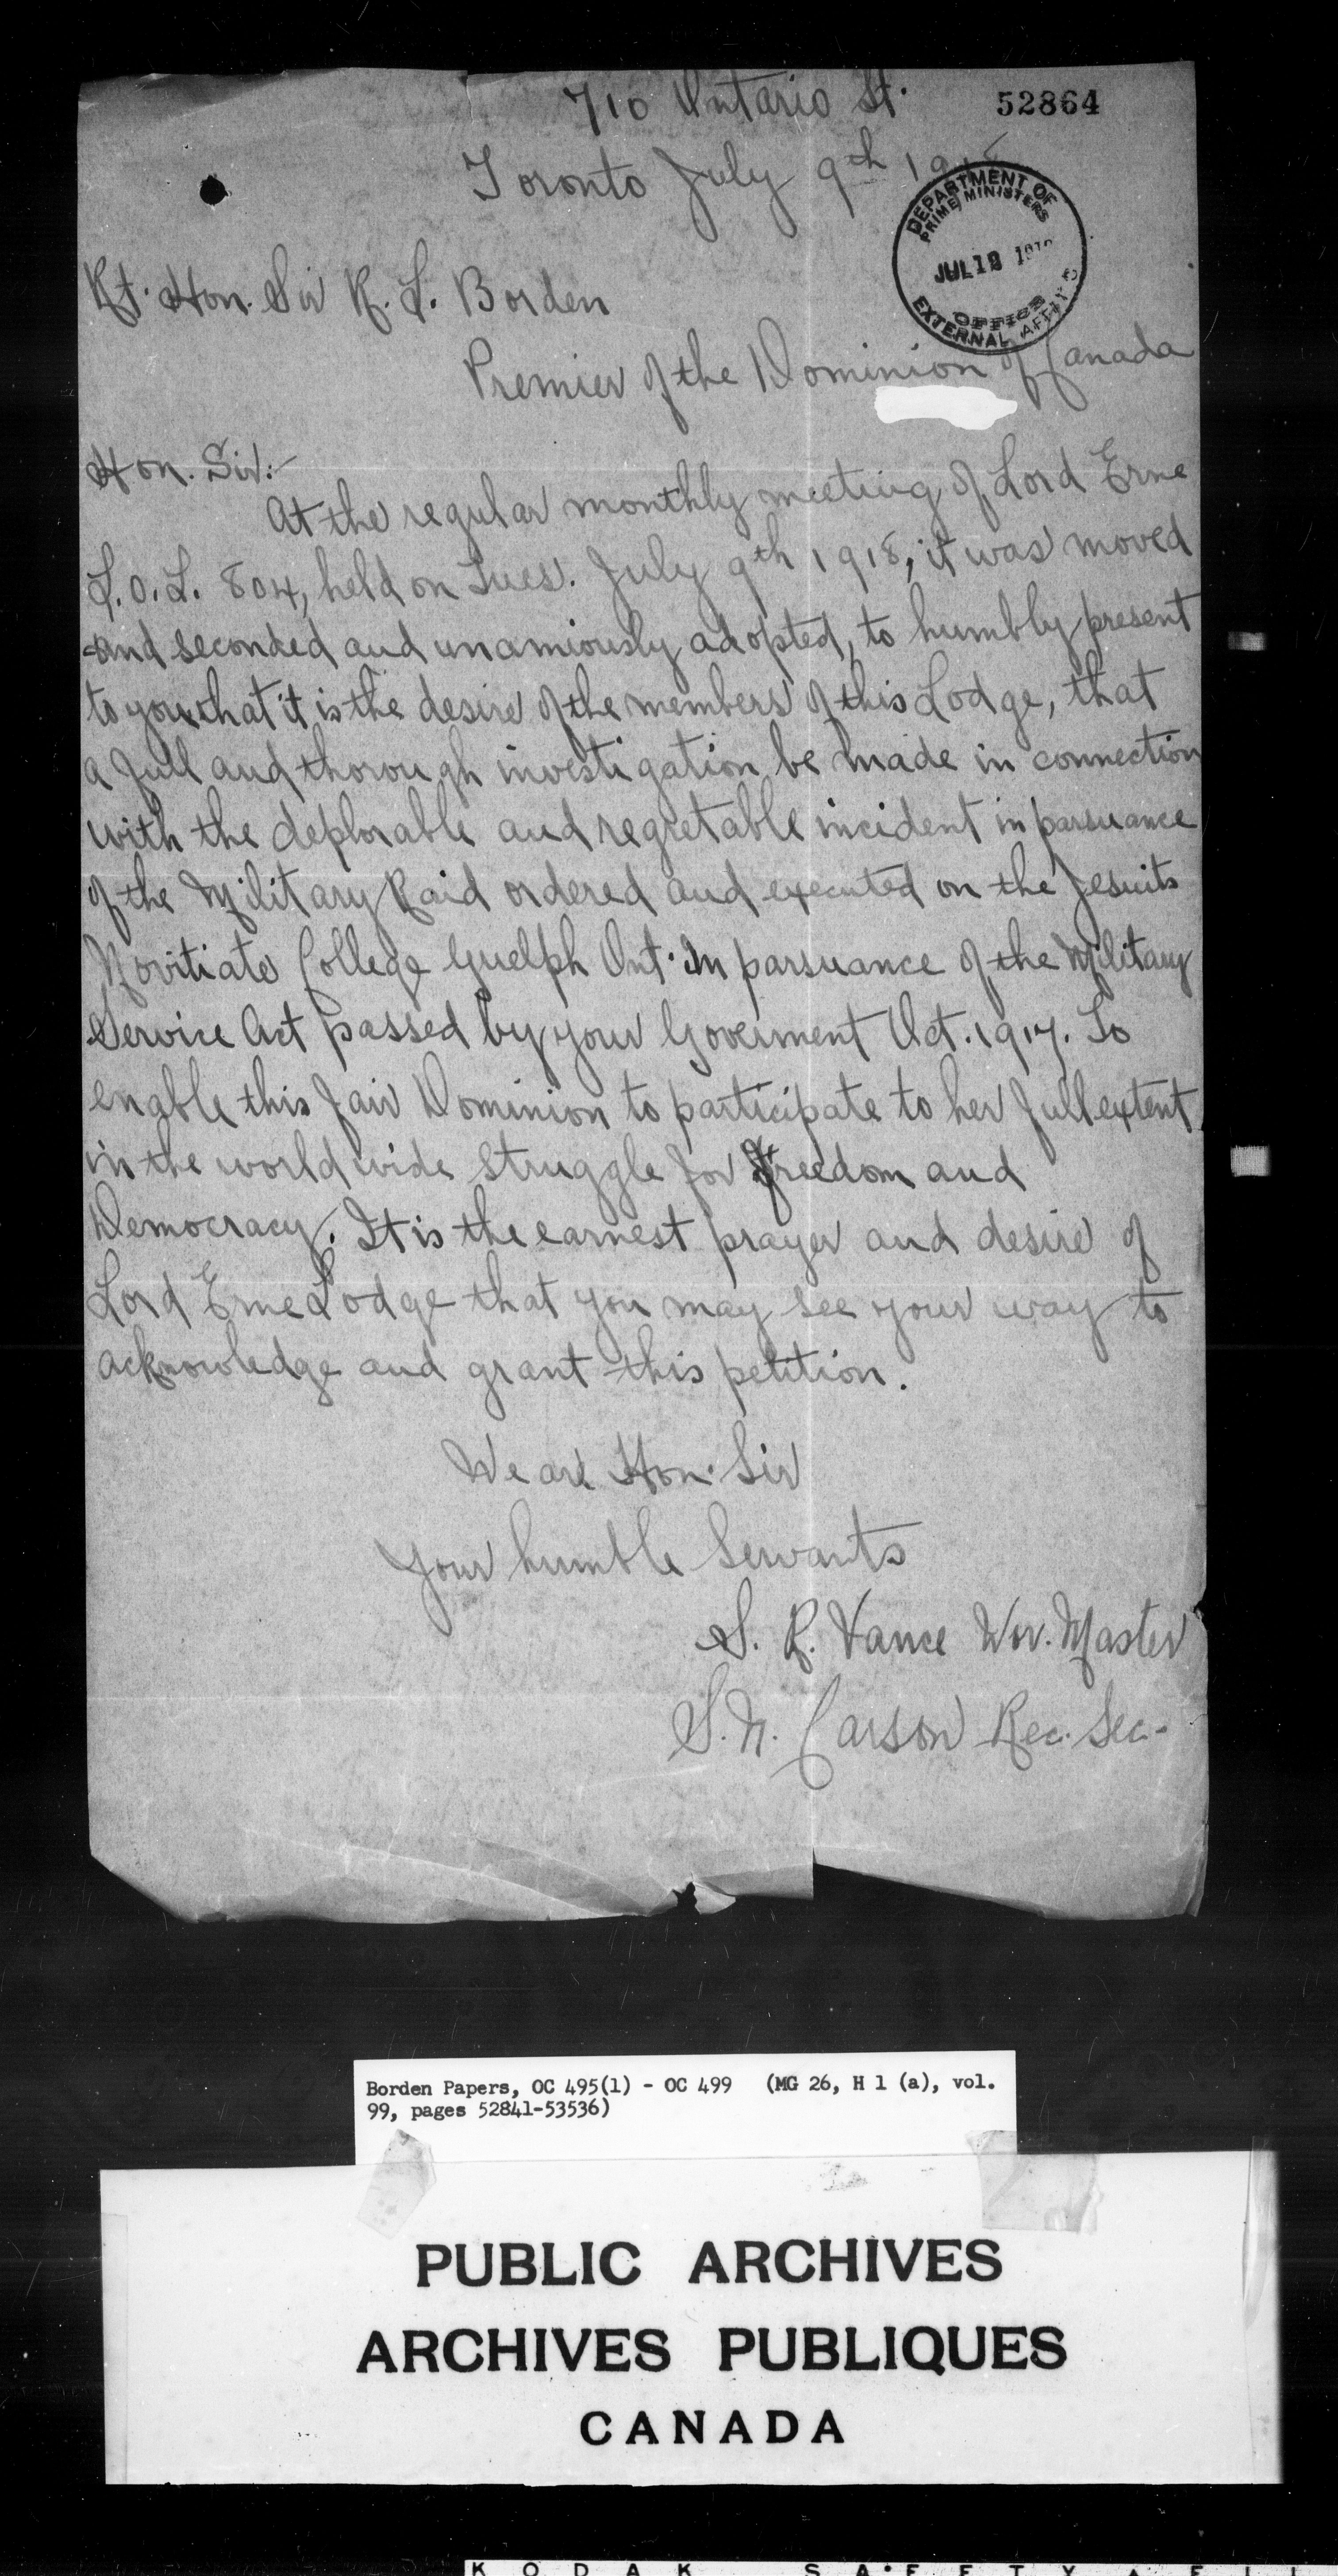 710 Ontario St.
52864
Toronto July 9th 191
DEPARTMENT OF
PRIME MINISTERS
JUL 12 191
OFFICE
EXTERNAL AFFAIRS
Rt. Hon. Sir R. L. Borden
Premier of the Dominion of Canada
Hon. Sir:-
At the regular monthly meeting of Lord Erne
L.O.L. 804, held on Tues. July 9th 1918, it was moved
and seconded and unamiously adopted, to humbly present
to you that it is the desire of the members of this Lodge, that
a full and thorough investigation be made in connection
with the deplorable and regretable incident in parsuance
of the Military Raid ordered and executed on the Jesuits
Novitiate College Guelph Ont. In parsuance of the Military
Service Act passed by your Goverment Oct. 1917. To
enable this fair Dominion to participate to her full extent
in the world wide struggle for Freedom and
Democracy. It is the earnest prayer and desire of
Lord Erne Lodge that you may see your way to
acknowledge and grant this petition.
We are Hon. Sir
Your humble Servants
S. R. Vance Wor. Master
S. N. Carson Rec. Sec.
Borden Papers, OC 495(1) - OC 499 (MG 26, H 1 (a), vol.
99, pages 52841-53536)
PUBLIC ARCHIVES
ARCHIVES PUBLIQUES
CANADA
KODAK SAFETY